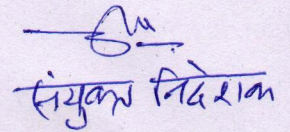 संयुक्त निदेशक